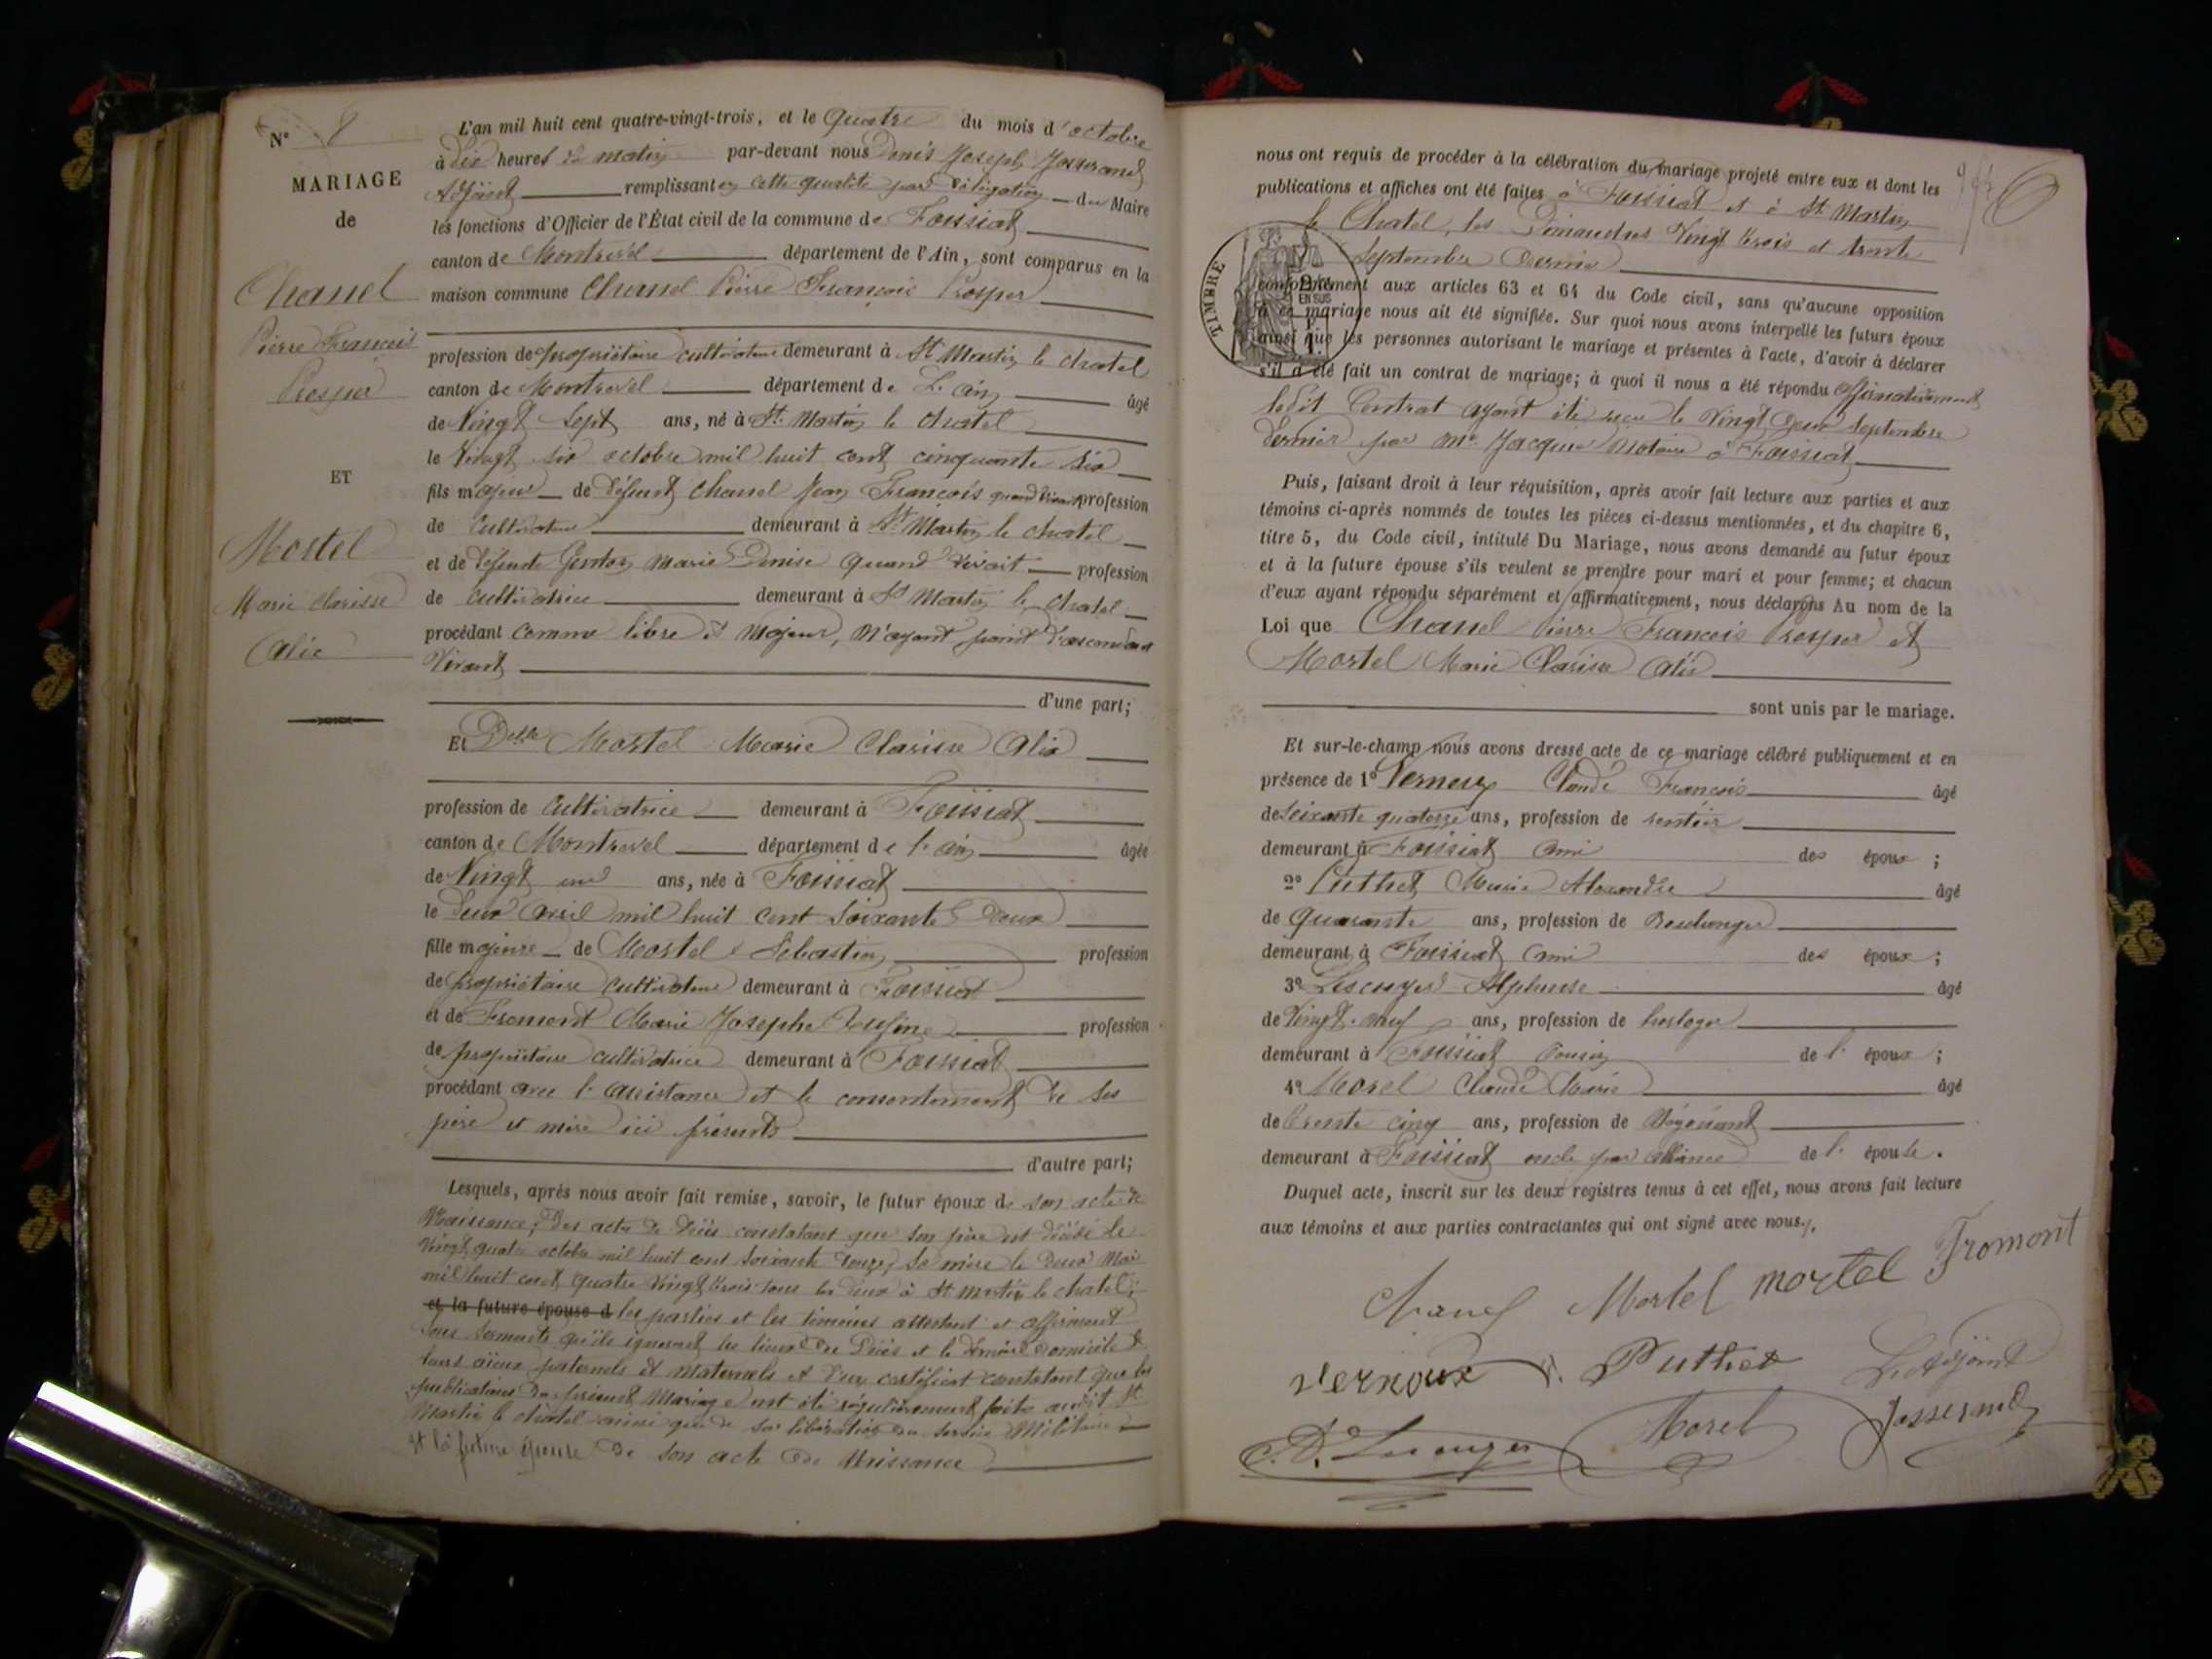 N° 8
MARIAGE
de
Chanel
Pierre François
Prosper
ET
Mortel
Marie Clarisse
Alix
L'an mil huit cent quatre-vingt-trois, et le Quatre du mois d'octobre
à dix heures du matin par-devant nous Denis Joseph Josserand
Adjoint remplissant en cette qualité par délégation du Maire
les fonctions d'Officier de l'État civil de la commune de Foissiat
canton de Montrevel département de l'Ain, sont comparus en la
maison commune Chanel Pierre François Prosper
profession de propriétaire cultivateur demeurant à St Martin le chatel
canton de Montrevel département de L'ain âgé
de Vingt Sept ans, né à St Martin le chatel
le Vingt six octobre mil huit cent cinquante six
fils majeur de défunt Chanel Jean François quand vivait profession
de Cultivateur demeurant à St Martin le chatel
et de défunte Marie Denise quand vivait profession
de cultivatrice demeurant à St Martin le chatel
procédant comme libre et majeur, n'ayant point d'ascendant
Vivant
d'une part;
Et Delle Mortel Marie Clarisse Alix
profession de Cultivatrice demeurant à Foissiat
canton de Montrevel département de l'ain âgée
de Vingt un ans, née à Foissiat
le deux avril mil huit cent soixante deux
fille majeure de Mortel Sébastien profession
de propriétaire cultivateur demeurant à Foissiat
et de Fromont Marie Josephe Zéphine profession
de propriétaire cultivatrice demeurant à Foissiat
procédant avec l'assistance et le consentement de ses
père et mère ici présents
d'autre part;
Lesquels, après nous avoir fait remise, savoir, le futur époux de son acte de
Naissance; des actes de décès constatant que son père est décédé le
Vingt quatre octobre mil huit cent soixante douze, sa mère le deux Mai
mil huit cent quatre Vingt trois tous les deux à St Martin le chatel;
et la future épouse d les parties et les témoins attestent et affirment
sous serment qu'ils ignorent les lieux de Décès et le dernier domicile de
leurs aïeux paternels et maternels et d'un certificat constatant que les
publications du présent Mariage ont été régulièrement faites audit St
Martin le chatel ainsi que de sa libération du service Militaire
et la future épouse de son acte de Naissance
nous ont requis de procéder à la célébration du mariage projeté entre eux et dont les
publications et affiches ont été faites à Foissiat et à St Martin
le Chatel, les Dimanches Vingt trois et trente
Septembre dernier
TIMBRE
2/10
EN SUS
conformément aux articles 63 et 64 du Code civil, sans qu'aucune opposition
à ce mariage nous ait été signifiée. Sur quoi nous avons interpellé les futurs époux
ainsi que les personnes autorisant le mariage et présentes à l'acte, d'avoir à déclarer
s'il a été fait un contrat de mariage; à quoi il nous a été répondu affirmativement
ledit Contrat ayant été reçu le Vingt deux Septembre
dernier par Me Jacquier notaire à Foissiat
Puis, faisant droit à leur réquisition, après avoir fait lecture aux parties et aux
témoins ci-après nommés de toutes les pièces ci-dessus mentionnées, et du chapitre 6,
titre 5, du Code civil, intitulé Du Mariage, nous avons demandé au futur époux
et à la future épouse s'ils veulent se prendre pour mari et pour femme; et chacun
d'eux ayant répondu séparément et affirmativement, nous déclarons Au nom de la
Loi que Chanel Pierre François Prosper et
Mortel Marie Clarisse Alix
sont unis par le mariage.
Et sur-le-champ nous avons dressé acte de ce mariage célébré publiquement et en
présence de 1° Vernoux Claude François âgé
de Soixante quatorze ans, profession de rentier
demeurant à Foissiat ami des époux ;
2° Puthet Marie Alexandre âgé
de Quarante ans, profession de Boulanger
demeurant à Foissiat ami des époux ;
3° Lescuyer Alphonse âgé
de Vingt-neuf ans, profession de horloger
demeurant à Foissiat Cousin de l'époux ;
4° Morel Claude Marie âgé
de trente cinq ans, profession de Négociant
demeurant à Foissiat oncle par alliance de l'épouse.
Duquel acte, inscrit sur les deux registres tenus à cet effet, nous avons fait lecture
aux témoins et aux parties contractantes qui ont signé avec nous.
Chanel Mortel mortel Fromont
vernoux Puthet L'adjoint
Lescuyer Morel Josserand